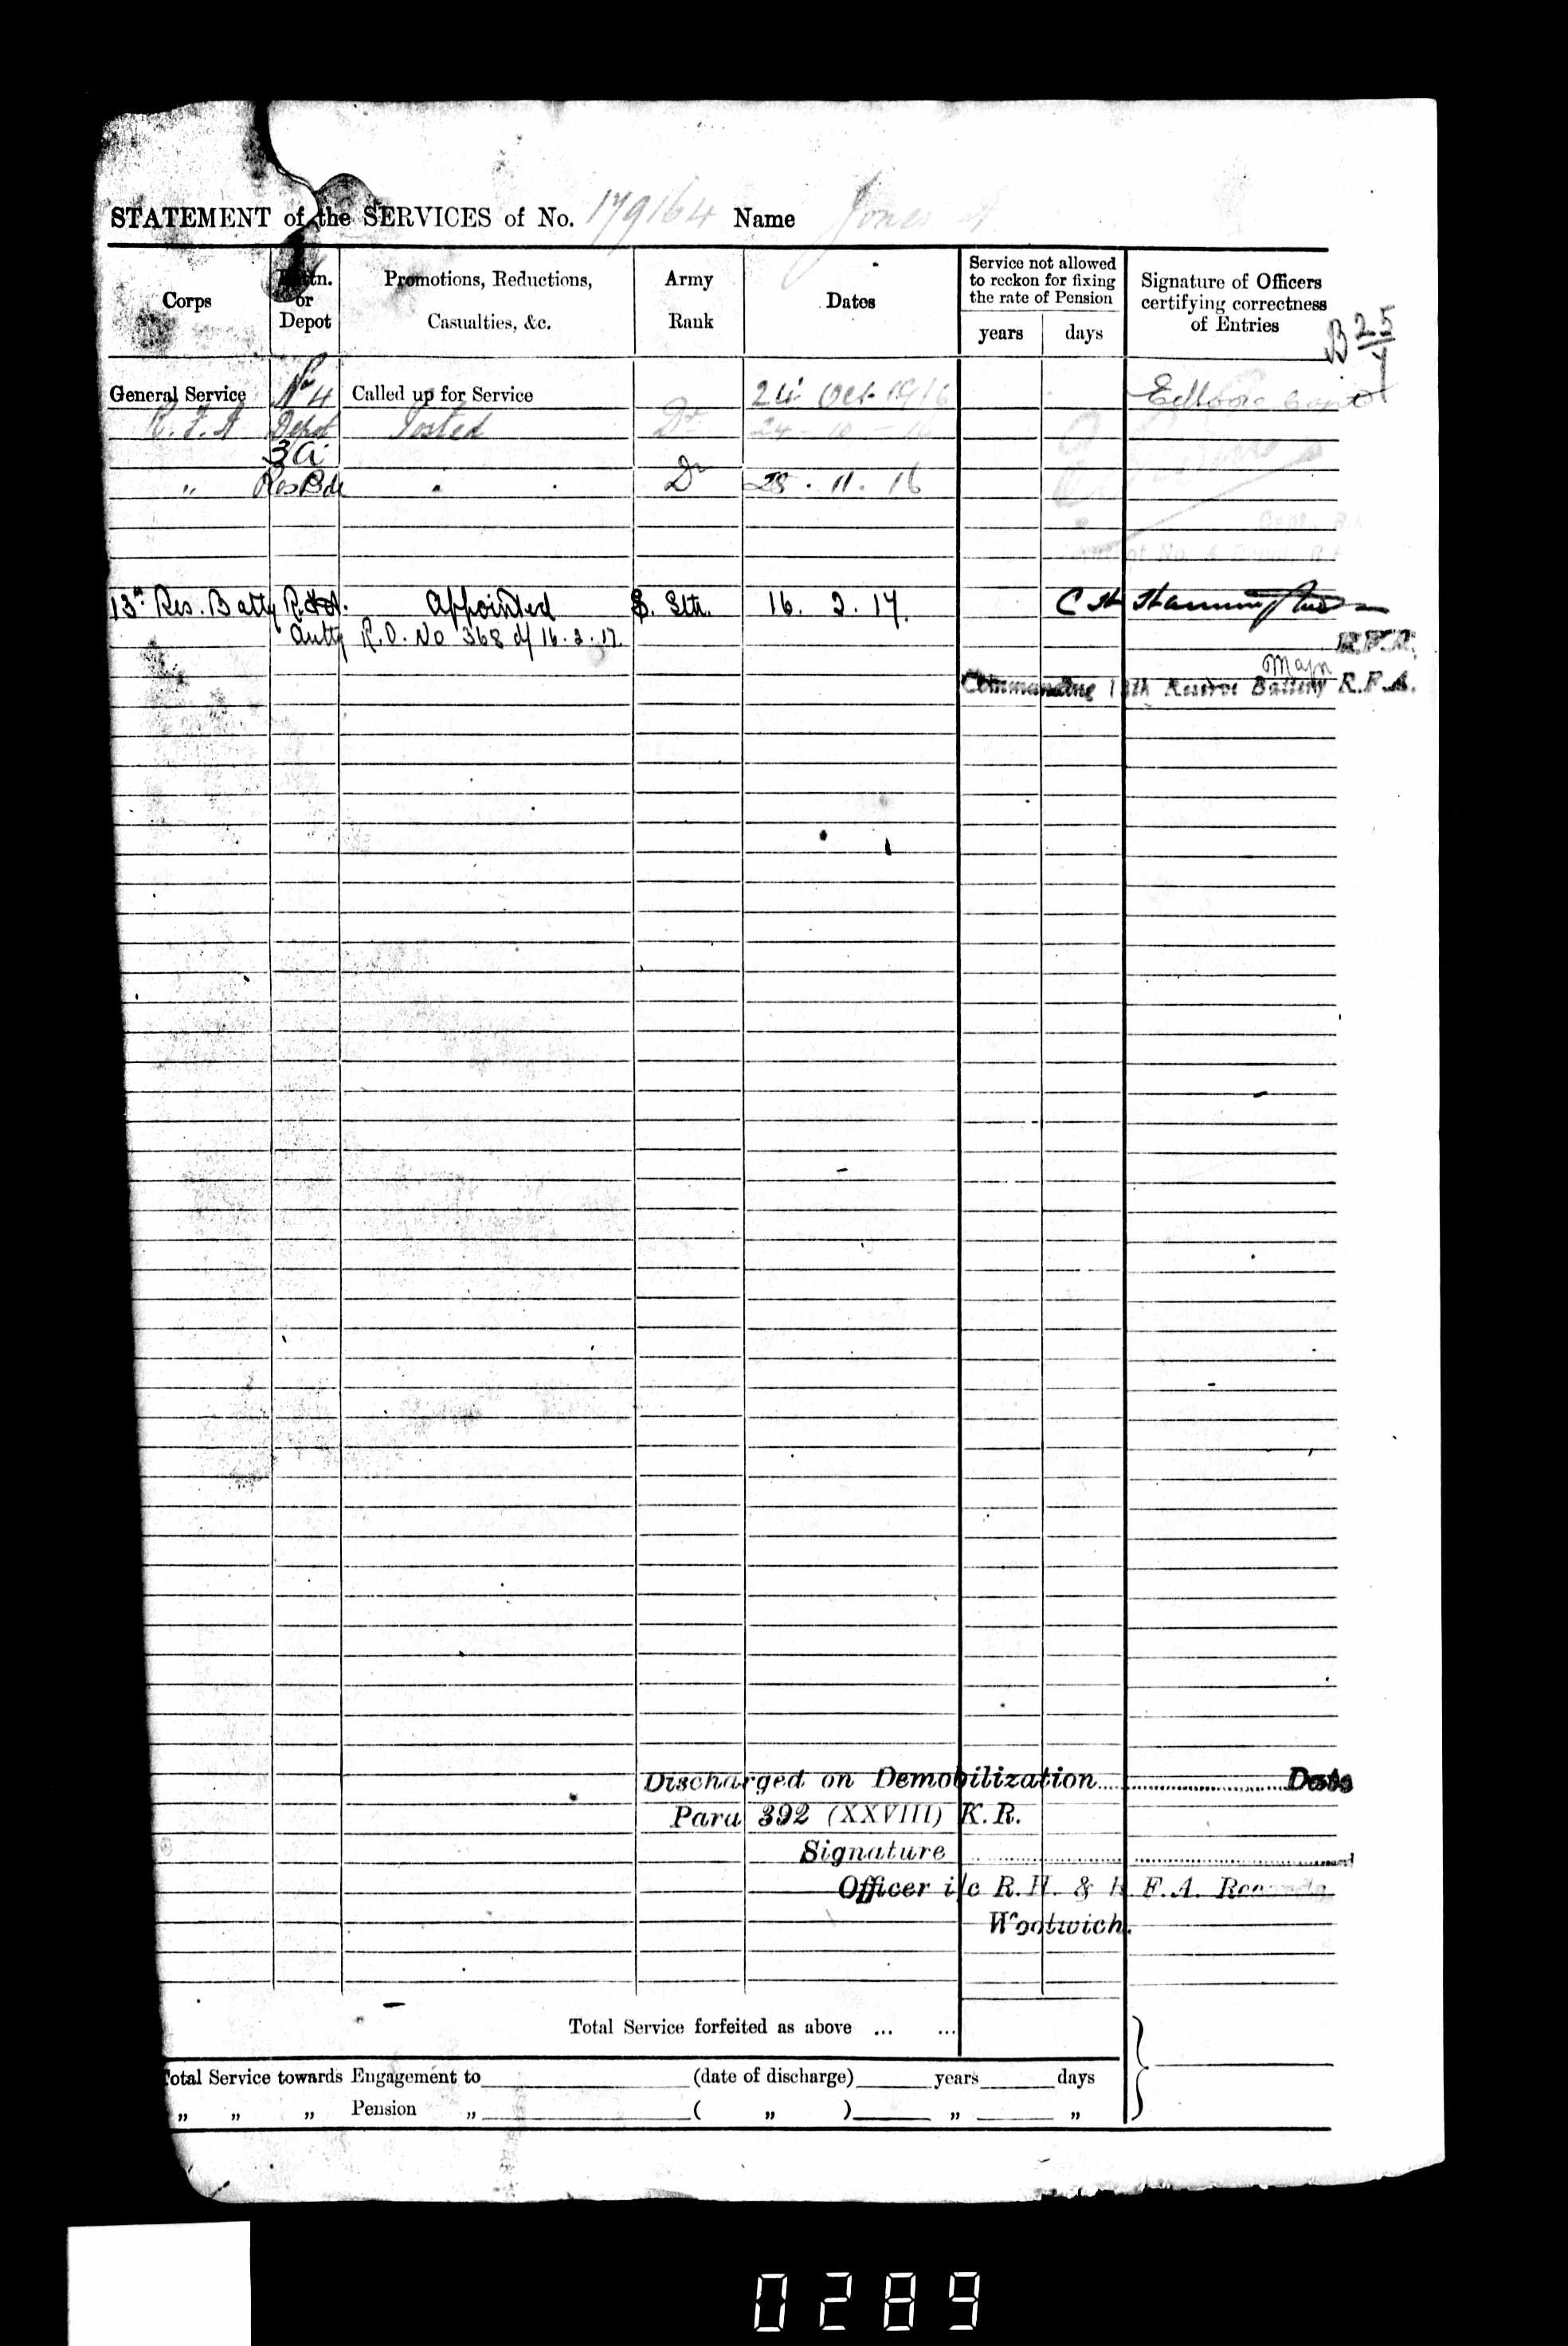 STATEMENT of the SERVICES of No. 179164 Name Jones A
Corps
Battn. or Depot
Promotions, Reductions, Casualties, &c.
Army Rank
Dates
Service not allowed to reckon for fixing the rate of Pension
years days
Signature of Officers certifying correctness of Entries
B 25/
General Service No 4 Called up for Service 24 Oct 1916 Capt
R.F.A Depot Posted Dr 24-10-16
3A
" Res Bde " Dr 28.11.16
13th Res. Batty R.F.A. Appointed S. Sth. 16.2.17. C H
Authy R.O. No 368 d/ 16.2.17.
R.F.A.
Major
Commanding 13th Reserve Battery R.F.A.
Discharged on Demobilization.......... Date
Para 392 (XXVIII) K.R.
Signature ..........
Officer i/c R.H. & R.F.A. Records
Woolwich.
Total Service forfeited as above ... ...
Total Service towards Engagement to (date of discharge) years days
" " " Pension " ( " ) " "
0289